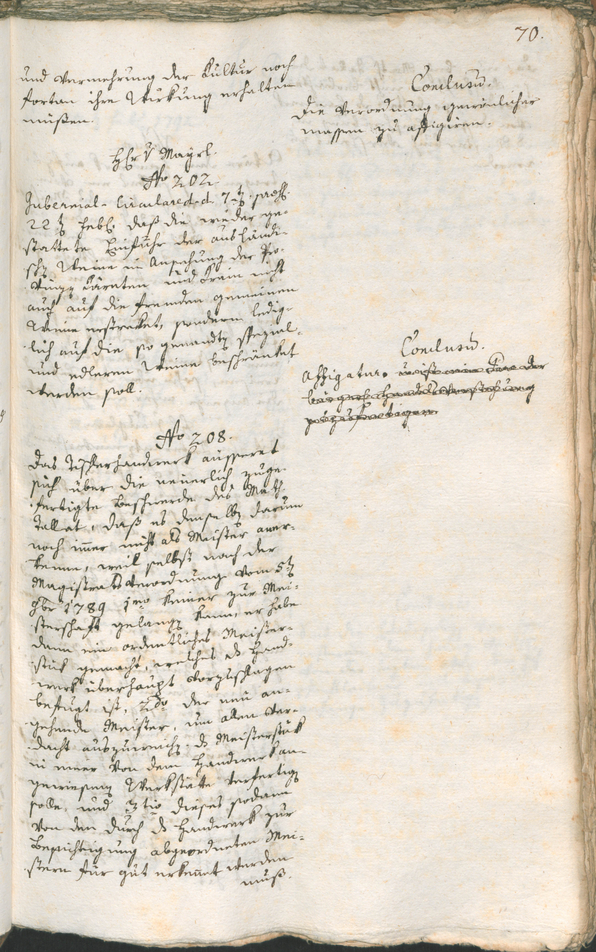 70.
und Vermehrung der Kultur noch
fortan ihre Wirkung erhalten
müßen.
Conclusũ.
Die Verordnung gewöhnlicher
massen zu affigiren.
H: v Mayrl.
No 202.
Gubernial-Circulare d.d. 7ten praes.
22ten Febr. daß die wieder ge-
stattete Einfuhr der ausländi-
schen Weine in Ansehung der Pro-
vinzen Kärnten und Krain nicht
auch auf die fremden gemeinen
Weine erstrecket, sondern ledig-
lich auf die so genandten Spezial-
und edleren Weine beschränket
werden soll.
Conclusũ.
Affigatur.
No 208.
Das Tischlerhandwerk äusseret
sich über die neuerlich zuge-
fertigte Beschwerde des Math:
Tallat, daß es denselben darum
noch immer nicht als Meister aner-
kenne, weil selbst nach der
Magistratsverordnung vom 5ten
9ber 1789 1mo keiner zur Mei-
sterschaft gelangen kann, er habe
dann ein ordentliches Meister-
stück gemacht, welches das Hand-
werk überhaupt vorzuschlagen
befugt ist, 2do der neu an-
gehende Meister, um allen Ver-
dacht auszuweichen, das Meisterstück
in einer von dem Handwerk an-
gewiesenen Werkstätte verfertigen
solle, und 3tio dieses sodann
von den durch das Handwerk zur
Besichtigung abgeordneten Mei-
stern für gut erkennet werden
muß.